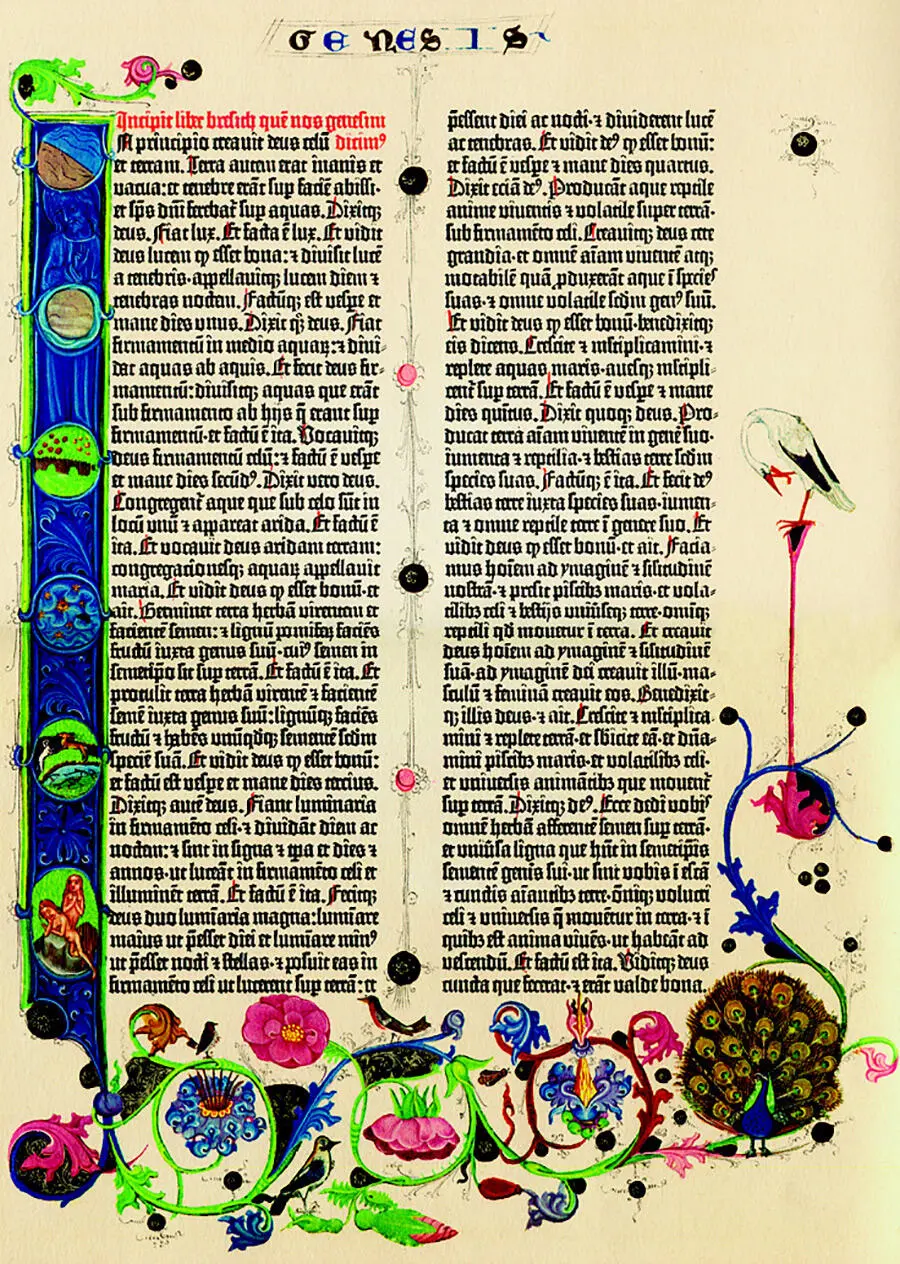 GENESIS
Incipit liber bresith quē nos genesim
In principio creauit deus celū dicimꝰ
et terram. Terra autem erat inanis et
vacua: et tenebre erāt sup facie abissi·
et sp̄s dn̄i ferebať sup aquas. Dixitqꝫ
deus. Fiat lux. Et facta ē lux. Et vidit
deus lucem ꝙ esset bona: ⁊ diuisit lucē
a tenebris· appellauitqꝫ lucem diem ⁊
tenebras noctem. Factūqꝫ est vespe et
mane dies vnus. Dixit qꝫ deus. Fiat
firmamentū in medio aquaꝝ: ⁊ diui-
dat aquas ab aquis. Et fecit deus fir-
mamentū: diuisitqꝫ aquas que erāt
sub firmamento ab hijs q̄ erant sup
firmamentū· et factū ē ita. Vocauitqꝫ
deus firmamentū celū: ⁊ factū ē vespe
et mane dies secūdꝰ. Dixit vero deus.
Congregent̃ aque que sub celo sūt in
locū vnū ⁊ appareat arida. Et factū ē
ita. Et vocauit deus aridam terram:
congregacionesqꝫ aquaꝝ appellauit
maria. Et vidit deus ꝙ esset bonū· et
ait. Germinet terra herbā virentem et
facientē semen: ⁊ lignū pomifeꝝ faciēs
fructū iuxta genus suū· cuiꝰ semen in
semetip̄o sit sup terrā. Et factū ē ita. Et
protulit terra herbā virentē ⁊ facientē
semē iuxta genus suū: lignūqꝫ faciēs
fructū ⁊ habēs vnūqdqꝫ sementē scdm̄
speciē suā. Et vidit deus ꝙ esset bonū:
et factū est vespe et mane dies tercius.
Dixitqꝫ autē deus. Fiant luminaria
in firmamēto celi· ⁊ diuidāt diem ac
noctem: ⁊ sint in signa ⁊ tp̄a et dies ⁊
annos· ut luceāt in firmamēto celi et
illuminēt terrā. Et factū ē ita. Fecitqꝫ
deus duo luminaria magna: lumīare
maius ut p̄esset diei et lumīare minꝰ
ut p̄esset nocti ⁊ stellas· ⁊ posuit eas in
firmamēto celi ut lucerent sup terrā: et
p̄essent diei ac nocti· ⁊ diuiderent lucē
ac tenebras. Et vidit deꝰ ꝙ esset bonū:
et factū ē vespe ⁊ mane dies quartus.
Dixit eciā deꝰ. Producāt aque reptile
anime viuentis ⁊ volatile super terrā·
sub firmamēto celi. Creauitqꝫ deus cete
grandia· et omnē aīam viuentē atqꝫ
motabilē quā ꝓduxerāt aque ī species
suas· ⁊ omne volatile scdm̄ genꝰ suū.
Et vidit deus ꝙ esset bonū· benedixitqꝫ
eis dicens. Crescite ⁊ mĺtiplicamini· ⁊
replete aquas maris· auesqꝫ mĺtipli-
cent̃ sup terrā. Et factū ē vespe ⁊ mane
dies quītus. Dixit quoqꝫ deus. Pro-
ducat terra aīam viuentē in genē suo·
iumenta ⁊ reptilia· ⁊ bestias terre scdm̄
species suas. Factūqꝫ ē ita. Et fecit deꝰ
bestias terre iuxta species suas· iumen-
ta ⁊ omne reptile terre ī genere suo. Et
vidit deus ꝙ esset bonū· et ait. Facia-
mus hoīem ad ymaginē ⁊ silitudinē
nostrā· ⁊ presit piscibꝫ maris· et vola-
tilibꝫ celi ⁊ bestijs vniūseqꝫ terre· omīqꝫ
reptili qd̄ mouetur ī terra. Et creauit
deus hoīem ad ymaginē ⁊ silitudinē
suā· ad ymaginē dei creauit illū· ma-
sculū ⁊ feminā creauit eos. Benedixit-
qꝫ illis deus· ⁊ ait. Crescite ⁊ mĺtiplica-
mini ⁊ replete terrā· et sbicite eā· et dn̄a-
mini piscibꝫ maris· et volatilibꝫ celi·
et vniuersis animātibꝫ que mouent̃
sup terrā. Dixitqꝫ deꝰ. Ecce dedi vobis
omnē herbā afferentē semen sup terrā·
et vniūsa ligna que hn̄t in semetip̄is
sementē genis sui· ut sint vobis ī escā
⁊ cunctis aīantibꝫ terre· om̄iqꝫ volucri
celi ⁊ vniuersis q̄ mouētur in terra· ⁊ ī
quibꝫ est anima viuēs· ut habeāt ad
vescendū. Et factū est ita. Viditqꝫ deus
cuncta que fecerat· ⁊ erāt valde bona.